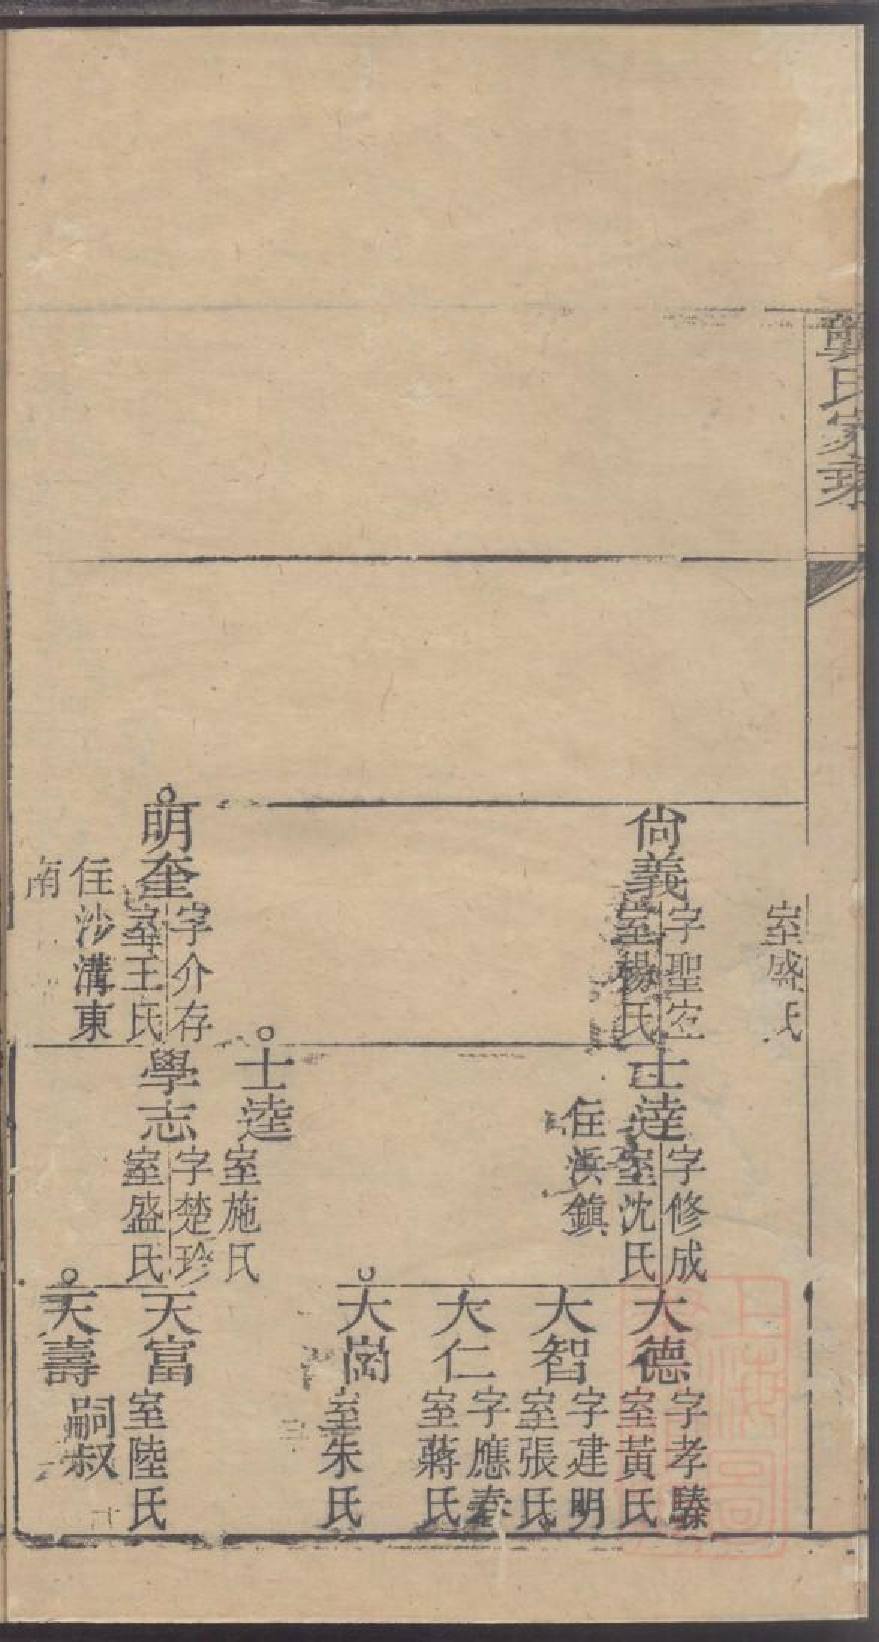 龔氏家乘
室盛氏
尙義
字聖空
室楊氏
明奎
字介存
室王氏
住沙溝東
南
士逵
字修成
室沈氏
住浜鎮
士逵
室施氏
學志
字楚珍
室盛氏
大德
字孝騋
室黃氏
大智
字建明
室張氏
大仁
字應春
室蔣氏
大崗
室朱氏
天富
室陸氏
天壽
嗣叔